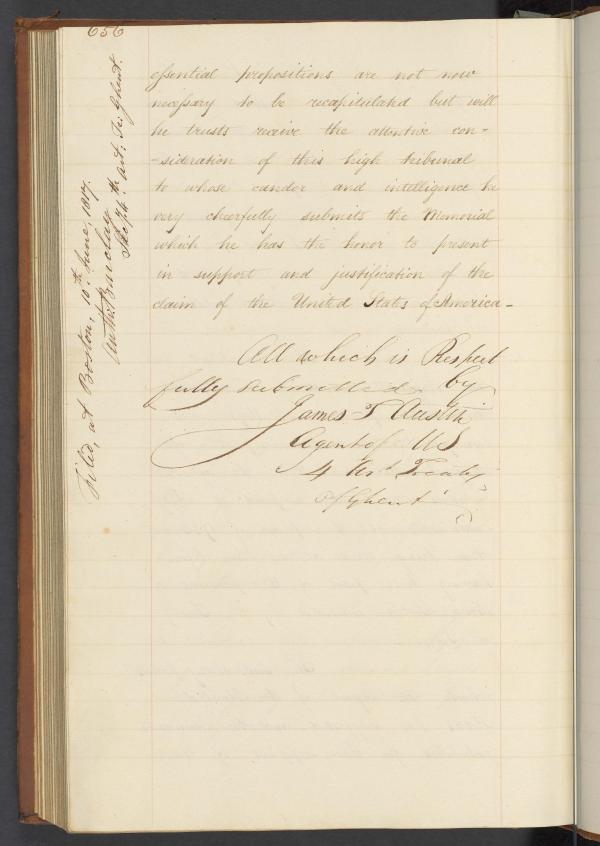 656
essential propositions are not now
necessary to be recapitulated but will
he trusts receive the attentive con-
-sideration of this high tribunal
to whose candor and intelligence he
very cheerfully submits the Memorial
which he has the honor to present
in support and justification of the
claim of the United States of America-
All which is Respect
fully submitted by
James T Austin
Agent of US
4 Art Treaty
of Ghent
Filed, at Boston, 10th June, 1817.
Anth: Barclay
Sec'y 4th art: Te: Ghent.